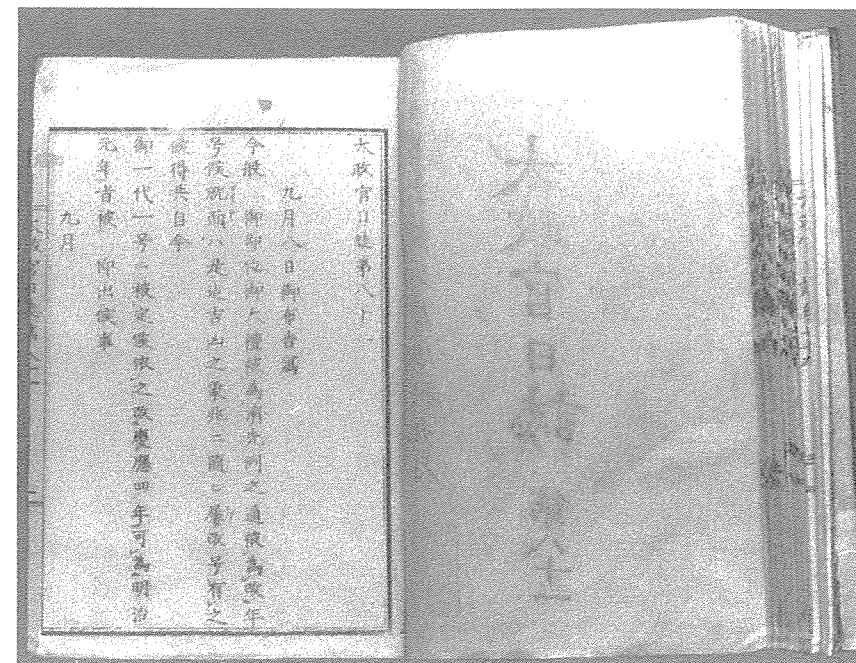 太政官日誌 第八十一
太政官日誌第八十一
九月八日御布告寫
今般 御即位御大禮被為濟先例之通被為改年
号候就而ハ是迄吉凶之象兆ニ隨ヒ屢改号有之
候得共自今
御一代一号ニ被定候依之改慶應四年可為明治
元年旨被 仰出候事
九月